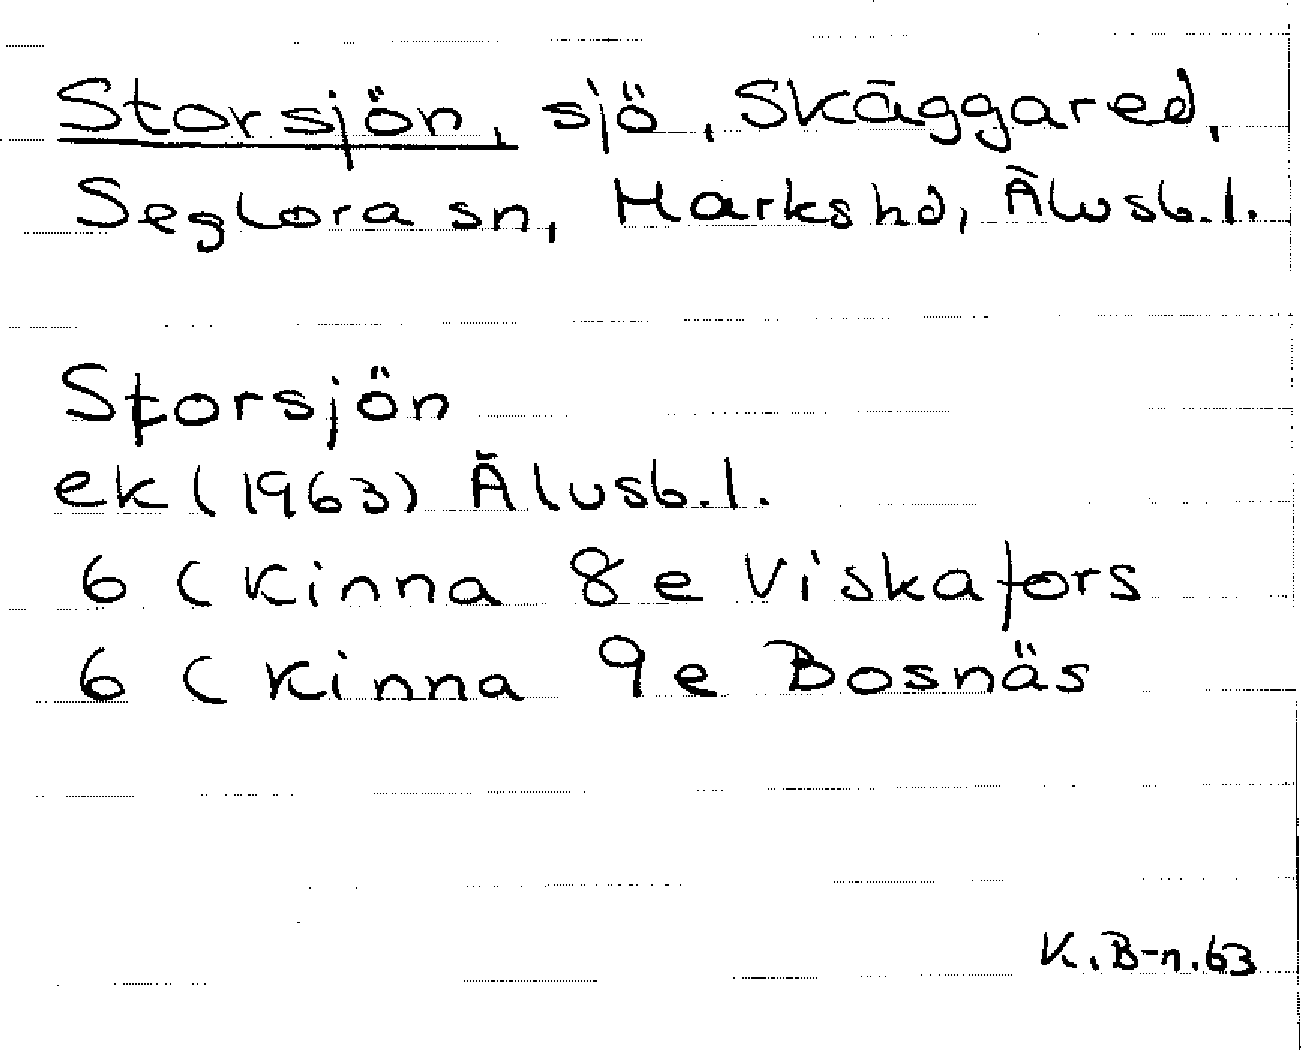 Storsjön, sjö, Skäggared,
Seglora sn, Marks hd, Älvsb.l.
Storsjön
ek (1963) Älvsb.l.
6 C Kinna 8e Viskafors
6 C Kinna 9e Bosnäs
K.B-n.63